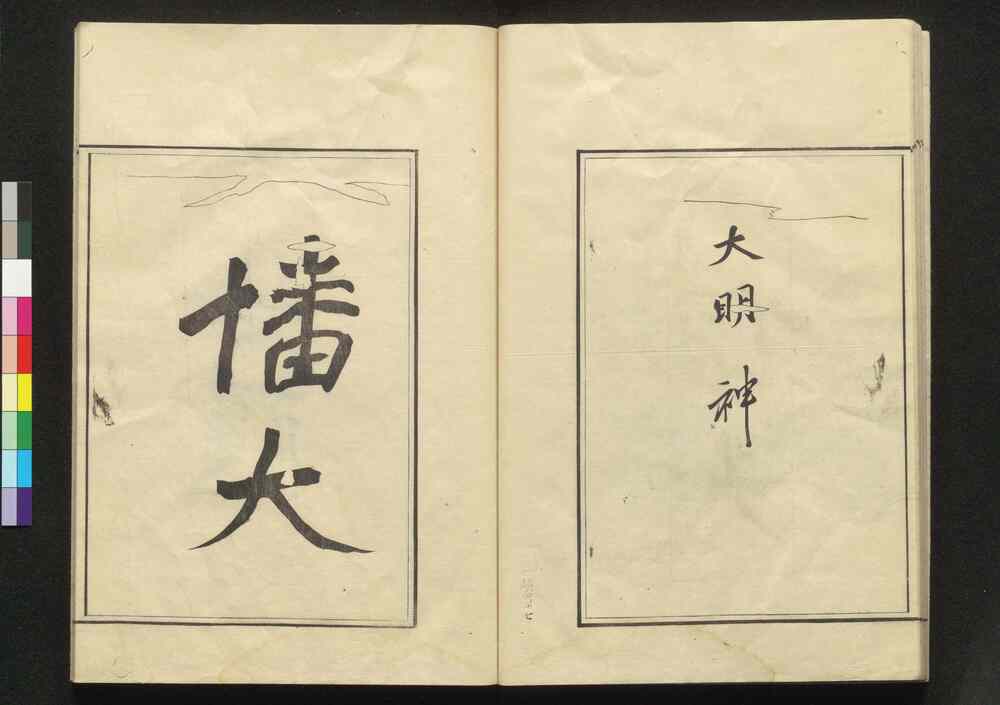 大明神
幡大